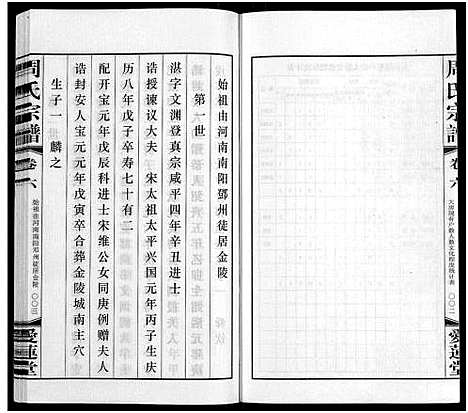 周氏宗譜
卷六
大房現有戶數人數文化程度統計表
〇〇二
愛蓮堂
始祖由河南南陽鄧州徒居金陵
第一世
湛字文淵登真宗咸平四年辛丑進士
誥授諫议大夫 宋太祖太平兴国元年丙子生庆
历八年戊子卒寿七十有二
配开宝元年戊辰科进士宋维公女同庚例赠夫人
诰封安人宝元元年戊寅卒合葬金陵城南主穴
生子一 麟之
周氏宗譜
卷六
始祖由河南南陽鄧州徒居金陵
〇〇三
愛蓮堂